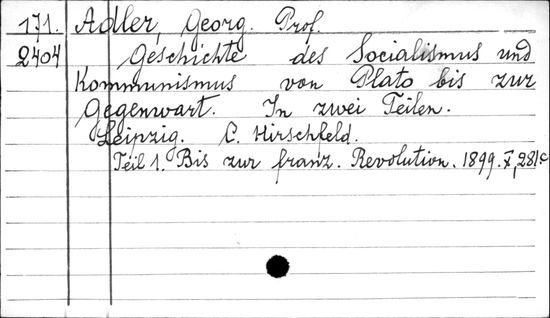 171. Adler, Georg. Prof.
2404 Geschichte des Socialismus und
Kommunismus von Plato bis zur
Gegenwart. In zwei Teilen.
Leipzig. C. Hirschfeld.
Teil 1. Bis zur franz. Revolution. 1899. X, 281